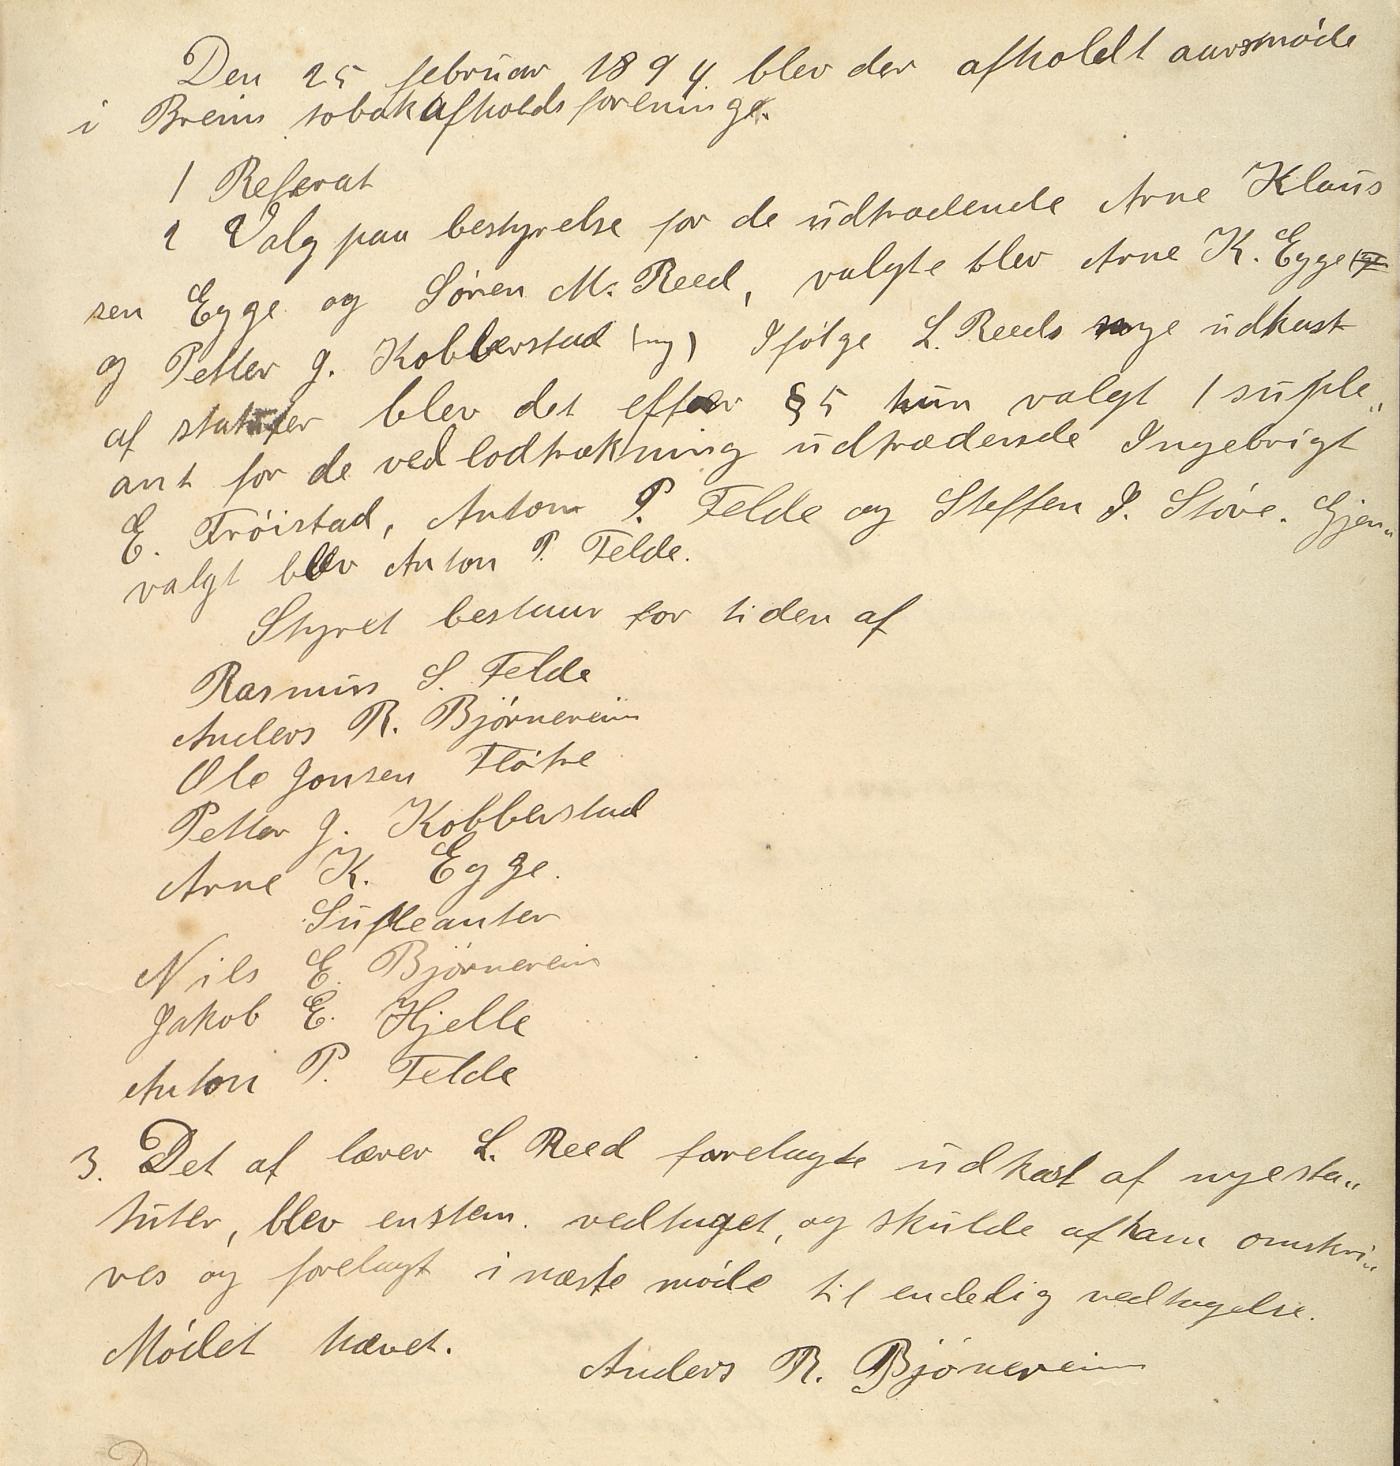 Den 25 februar 1894 blev der afholdt aarsmøde
i Breims tobakafholdsforening.
1 Referat
2 Valg paa bestyrelse for de udtrædende Arne Klaus
sen Egge og Søren M. Reed, valgte blev Arne K. Egge
og Petter J. Kobberstad (ny) Ifølge L. Reeds nye udkast
af statuter blev det efter § 5 kun valgt 1 suple„
ant for de ved lodtrækning udtrædende Ingebrigt
E. Frøistad, Anton P. Felde og Steffen J. Støve. Gjen„
valgt blev Anton P. Felde.
Styret bestaar for tiden af
Rasmus S. Felde
Anders R. Bjørnereim
Ole Jonsen Fløtre
Petter J. Kobberstad
Arne K. Egge.
Supleanter
Nils E. Bjørnereim
Jakob E. Hjelle
Anton P. Felde
3. Det af lærer L. Reed forelagte udkast af nye sta„
tuter, blev enstem. vedtaget, og skulde af ham omskri„
ves og forelagt i næste møde til endelig vedtagelse.
Mødet hævet.
Anders R. Bjørnereim